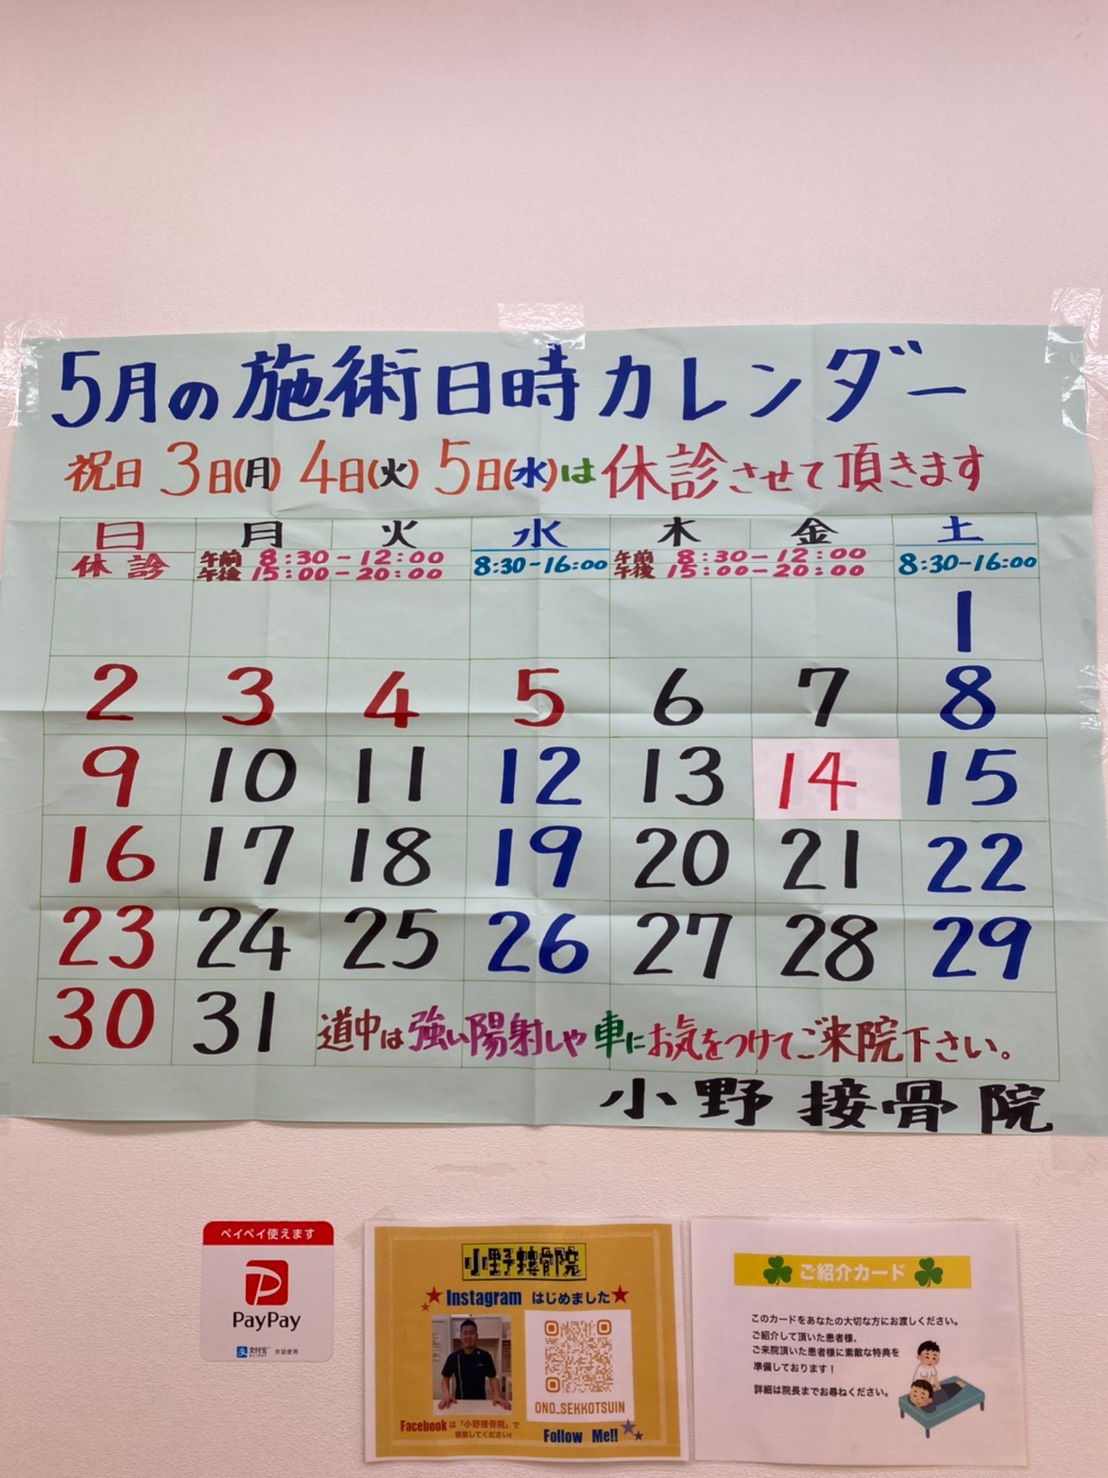 5月の施術日時カレンダー
祝日 3日(月) 4日(火) 5日(水)は休診させて頂きます
日 月 火 水 木 金 土
休診 午前 8:30-12:00 8:30-16:00 午前 8:30-12:00 8:30-16:00
午後 15:00-20:00 午後 15:00-20:00
1
2 3 4 5 6 7 8
9 10 11 12 13 14 15
16 17 18 19 20 21 22
23 24 25 26 27 28 29
30 31
道中は強い陽射しや車にお気をつけてご来院下さい。
小野接骨院
ペイペイ使えます
PayPay
支付宝
欢迎使用
小野接骨院
Instagram はじめました
ONO_SEKKOTSUIN
Facebookは「小野接骨院」で
検索してください!!
Follow Me!!
ご紹介カード
このカードをあなたの大切な方にお渡しください。
ご紹介して頂いた患者様、
ご来院頂いた患者様に素敵な特典を
準備しております！
詳細は院長までお尋ねください。